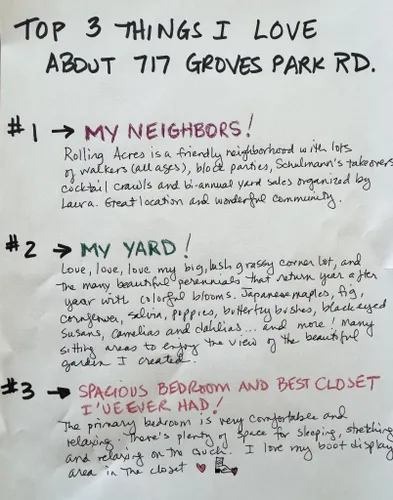 TOP 3 THINGS I LOVE
ABOUT 717 GROVES PARK RD.
#1 → MY NEIGHBORS!
Rolling Acres is a friendly neighborhood with lots
of walkers (all ages), block parties, Schulmann's takeovers
cocktail crawls and bi-annual yard sales organized by
Laura. Great location and wonderful community.
#2 → MY YARD!
Love, love, love my big, lush grassy corner lot, and
the many beautiful perennials that return year after
year with colorful blooms. Japanese maples, fig,
cornflower, salvia, poppies, butterfly bushes, black eyed
Susans, camelias and dahlias... and more! Many
sitting areas to enjoy the view of the beautiful
garden I created.
#3 → SPACIOUS BEDROOM AND BEST CLOSET
I'VE EVER HAD!
The primary bedroom is very comfortable and
relaxing. There's plenty of space for sleeping, stretching
and relaxing on the couch. I love my boot display
area in the closet